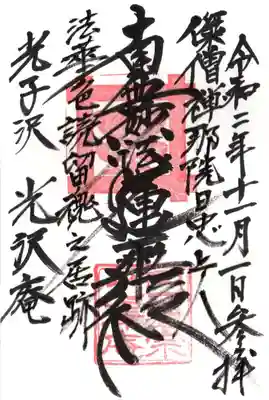 令和二年十一月一日参拝
傑僧禅那院日忍上人
南無妙法蓮華経
法華色読留魂之居跡
光子沢 光沢庵